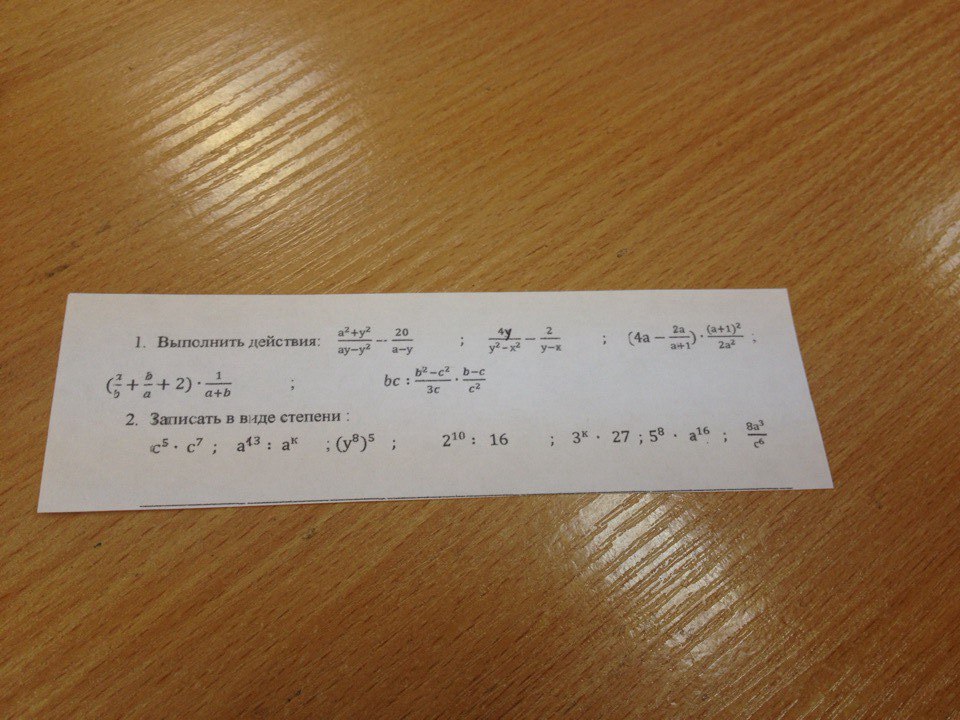 1. Выполнить действия: (a²+y²)/(ay−y²) − 20/(a−y) ; 4y/(y²−x²) − 2/(y−x) ; (4a − 2a/(a+1)) · (a+1)²/(2a²) ;
(a/b + b/a + 2) · 1/(a+b) ; bc : (b²−c²)/(3c) · (b−c)/c²
2. Записать в виде степени :
c⁵ · c⁷ ; a¹³ : aᴷ ; (y⁸)⁵ ; 2¹⁰ : 16 ; 3ᴷ · 27 ; 5⁸ · a¹⁶ ; 8a³/c⁶